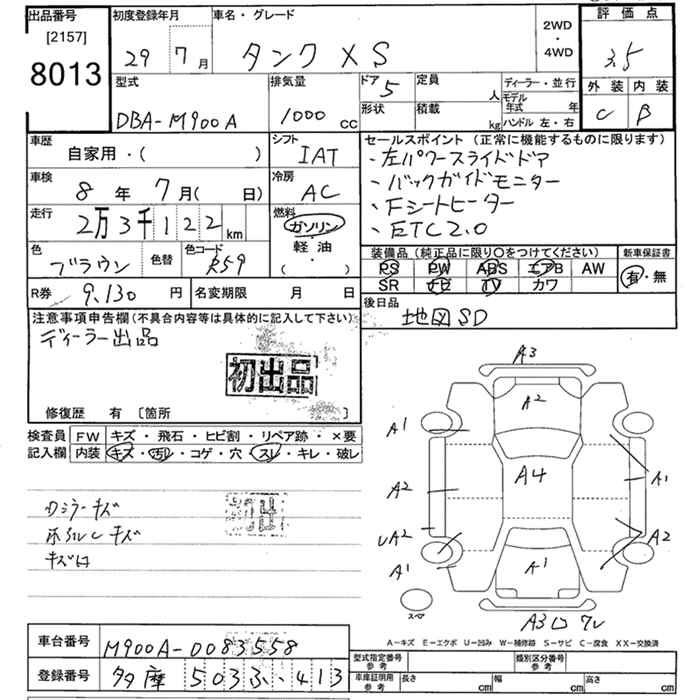 出品番号 初度登録年月 車名・グレード 2WD・4WD 評価点
[2157]
8013 29 7月 タンク XS 3.5
型式 排気量 ドア 5 定員 人 ディーラー・並行 外装 内装
DBA-M900A 1000cc 形状 積載 kg モデル年式 年 ハンドル 左・右 C B
車歴 シフト セールスポイント(正常に機能するものに限ります)
自家用・( ) IAT ・左パワースライドドア
車検 冷房 ・バックガイドモニター
8年 7月( 日) AC ・Fシートヒーター
走行 燃料 ・ETC2.0
2万3千122km ガソリン・軽油・( )
色 色替 色コード 装備品(純正品に限り○をつけてください) 新車保証書
ブラウン R59 PS PW ABS エアB AW 有・無
SR ナビ TV カワ
R券 9,130円 名変期限 月 日 後日品
地図SD
注意事項申告欄(不具合内容等は具体的に記入して下さい)
ディーラー出品
初出品
修復歴 有 [箇所 ]
検査員 FW キズ・飛石・ヒビ割・リペア跡・×要
記入欄 内装 キズ・汚れ・コゲ・穴・スレ・キレ・破レ
初出
キズ
キズ
キズ
A3
A2
A1
A4
A2 A1
UA2 A2
A1 A1
スペア
A3
A-キズ E-エクボ U-凹み W-補修跡 S-サビ C-腐食 XX-交換済
車台番号 M900A-0083558 型式指定番号 参考 類別区分番号 参考
登録番号 多摩 503 ふ・413 車庫証明用 参考 長さ cm 幅 cm 高さ cm